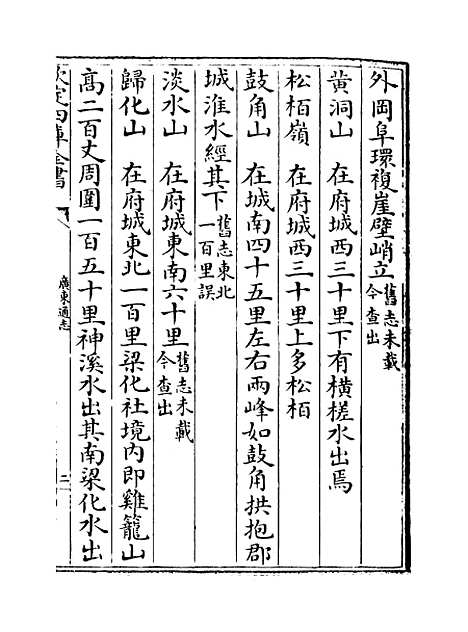 外岡阜環複崖壁峭立舊志未載今查出
黄洞山　在府城西三十里下有横槎水出焉
松栢嶺　在府城西三十里上多松栢
鼓角山　在城南四十五里左右兩峰如鼓角拱抱郡
城淮水經其下舊志東北一百里誤
淡水山　在府城東南六十里舊志未載今查出
歸化山　在府城東北一百里梁化社境内即雞籠山
髙二百丈周圍一百五十里神溪水出其南梁化水出
欽定四庫全書
廣東通志